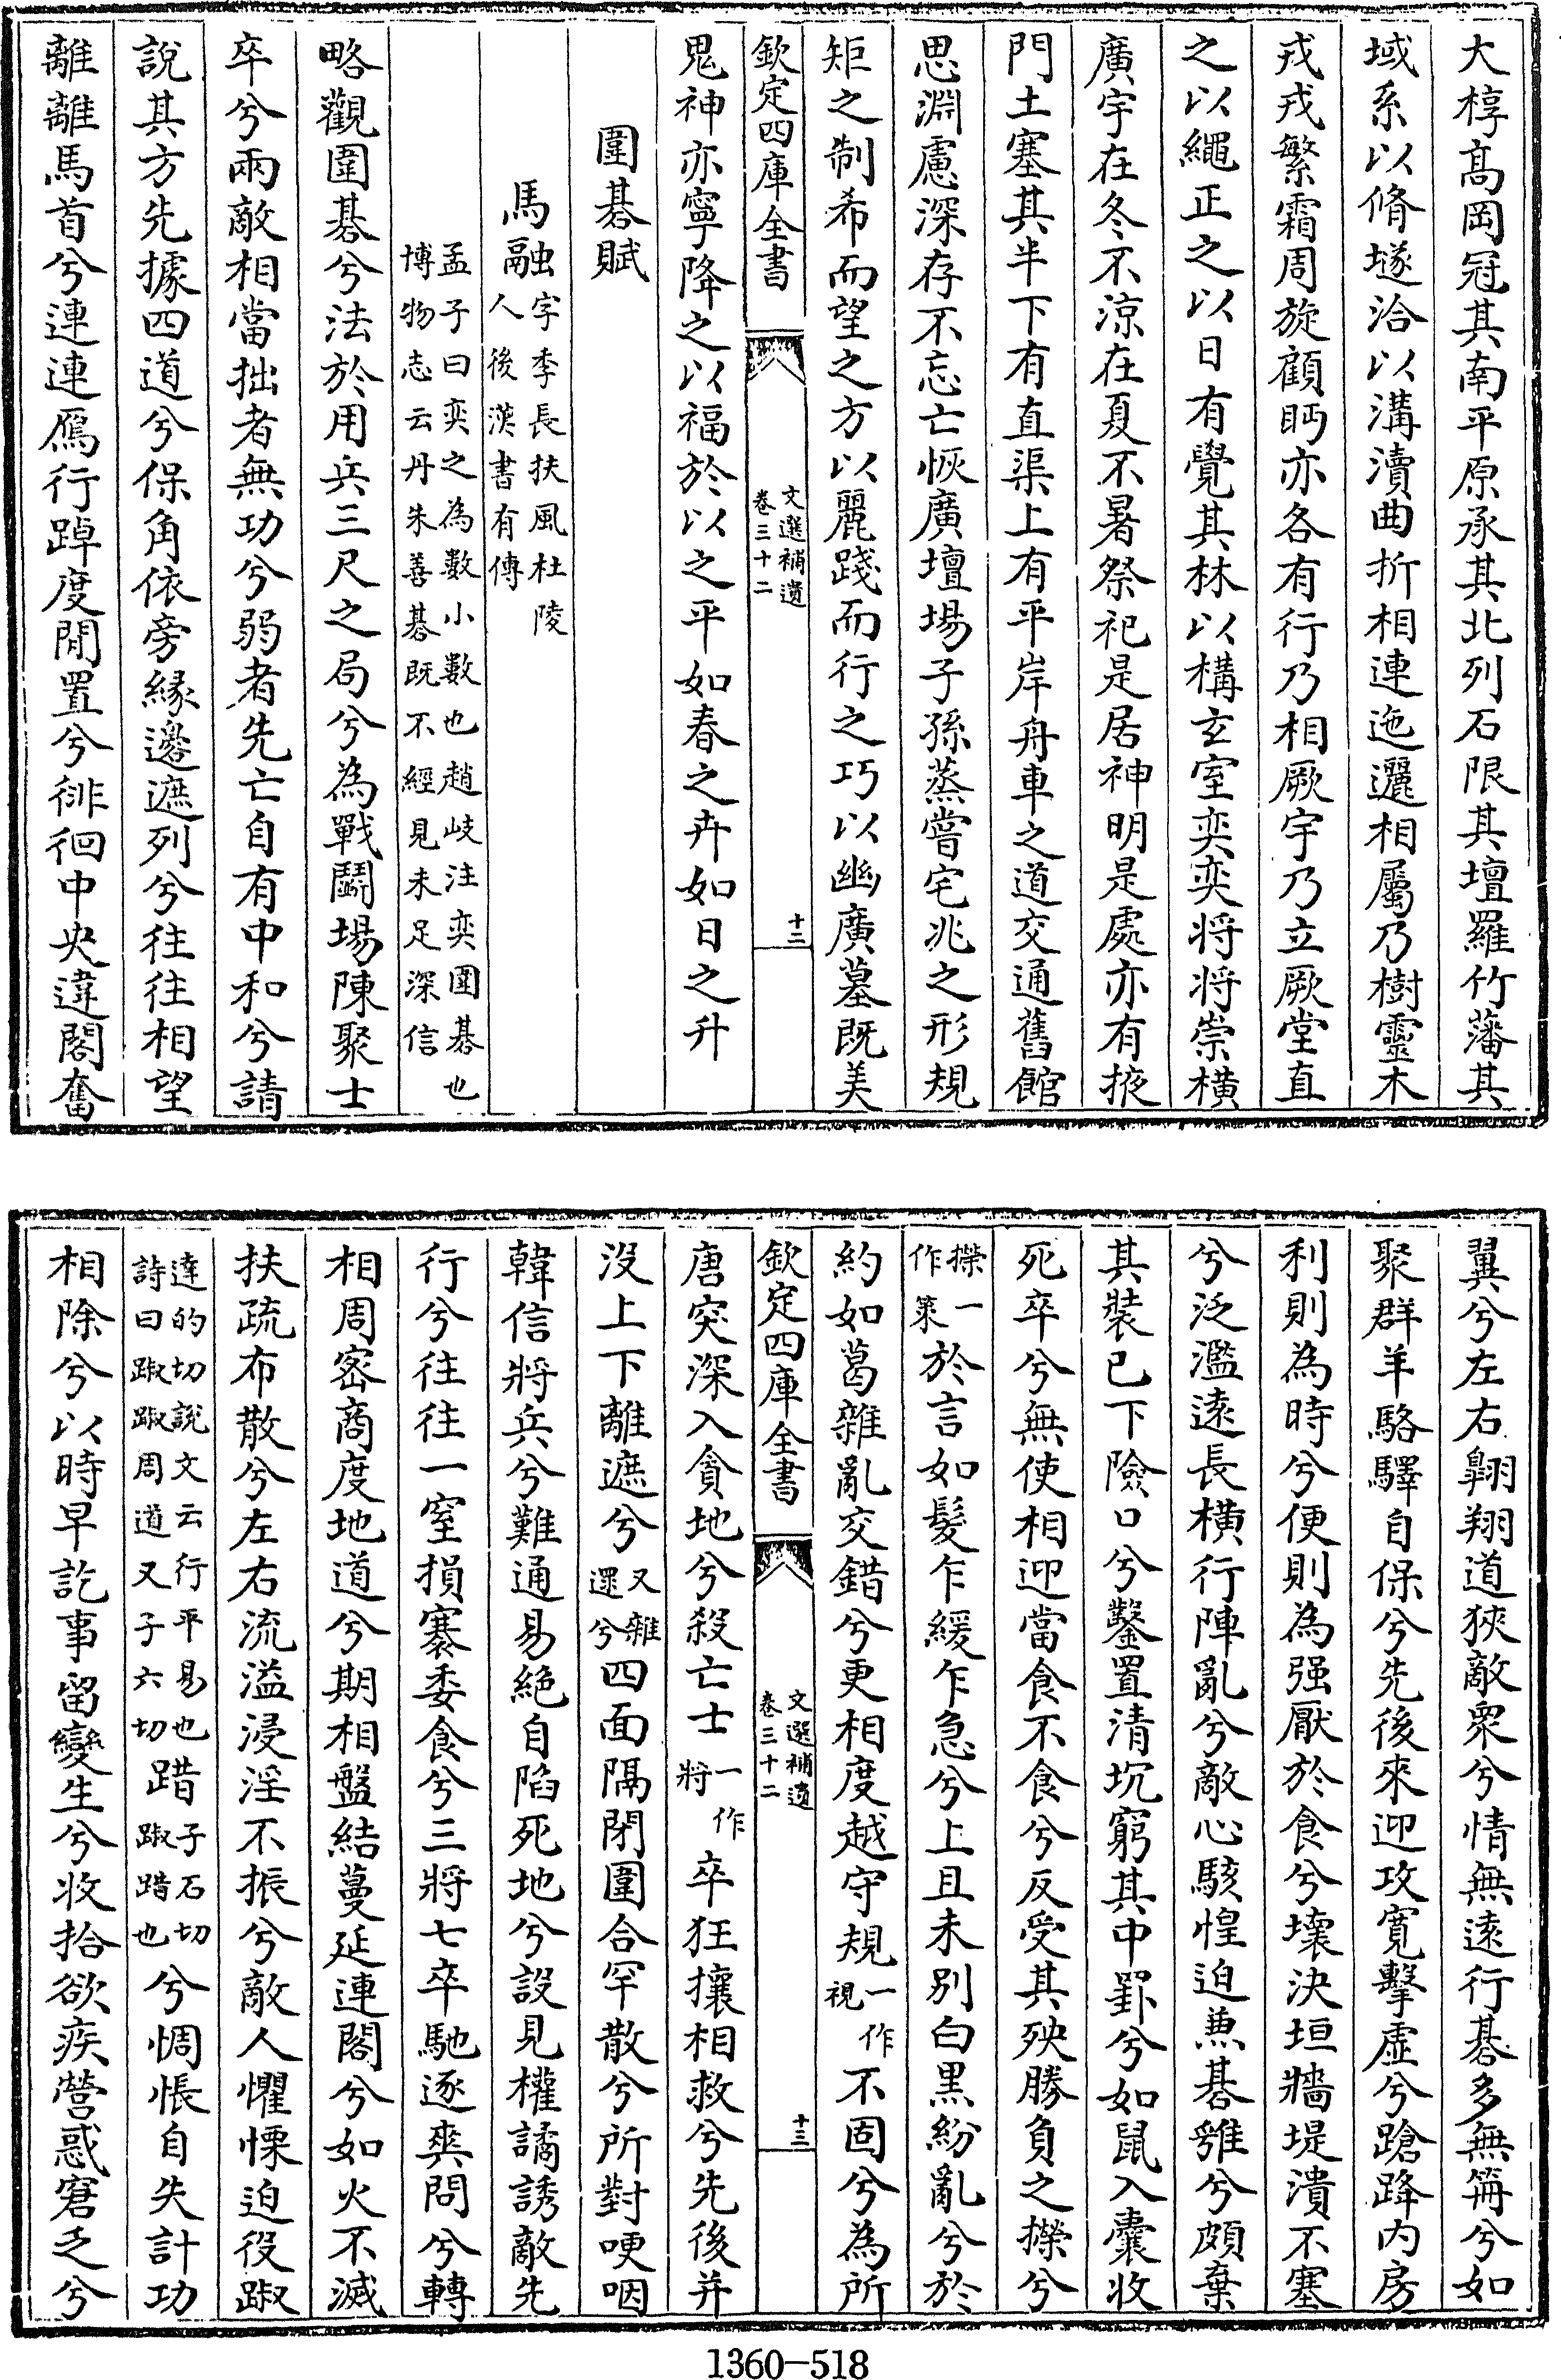 大椁髙岡冠其南平原承其北列石限其壇羅竹藩其
域系以脩墜洽以溝瀆曲折相連迤邐相屬乃樹靈木
戎戎繁霜周旋顧眄亦各有行乃相厥宇乃立厥堂直
之以繩正之以日有覺其林以構玄室奕奕将将崇横
廣宇在冬不涼在夏不暑祭祀是居神明是處亦有掖
門土塞其半下有直渠上有平岸舟車之道交通舊館
思淵慮深存不忘亡恢廣壇場子孫蒸嘗宅兆之形規
矩之制希而望之方以麗踐而行之巧以幽廣墓既美
欽定四庫全書
文選補遺
卷三十二
十二
鬼神亦寧降之以福於以之平如春之卉如日之升
圍碁賦
馬融字季長扶風杜陵
人後漢書有傳
孟子曰奕之為數小數也趙岐注奕圍碁也
博物志云丹朱善碁既不經見未足深信
略觀圍碁兮法於用兵三尺之局兮為戰鬭場陳聚士
卒兮兩敵相當拙者無功兮弱者先亡自有中和兮請
說其方先據四道兮保角依旁緣邊遮列兮往往相望
離離馬首兮連連鴈行踔度閒置兮徘徊中央違閣奮
翼兮左右翺翔道狹敵衆兮情無遠行碁多無冊兮如
聚群羊駱驛自保兮先後來迎攻寛擊虚兮蹌跭内房
利則為時兮便則為强厭於食兮壞決垣牆堤潰不塞
兮泛濫遠長横行陣亂兮敵心駭惶迫兼碁雞兮頗棄
其裝已下險口兮鑿置清坑窮其中罫兮如鼠入囊收
死卒兮無使相迎當食不食兮反受其殃勝負之擽兮
擽一
作策於言如髮乍緩乍急兮上且未別白黒紛亂兮於
約如葛雜亂交錯兮更相度越守規一作
視不固兮為所
欽定四庫全書
文選補遺
卷三十二
十三
唐突深入貪地兮殺亡士一作
將卒狂攘相救兮先後并
沒上下離遮兮又雜
還兮四面隔閉圍合罕散兮所對哽咽
韓信將兵兮難通易絶自陷死地兮設見權譎誘敵先
行兮往往一窒損寨委食兮三將七卒馳逐爽問兮轉
相周密商度地道兮期相盤結蔓延連閣兮如火不滅
扶疏布散兮左右流溢浸淫不振兮敵人懼慄迫役踧
達的切説文云行平易也
詩曰踧踧周道又子六切踖子石切
踧踖也兮惆悵自失計功
相除兮以時早訖事留變生兮收拾欲疾營惑窘乏兮
1360-518